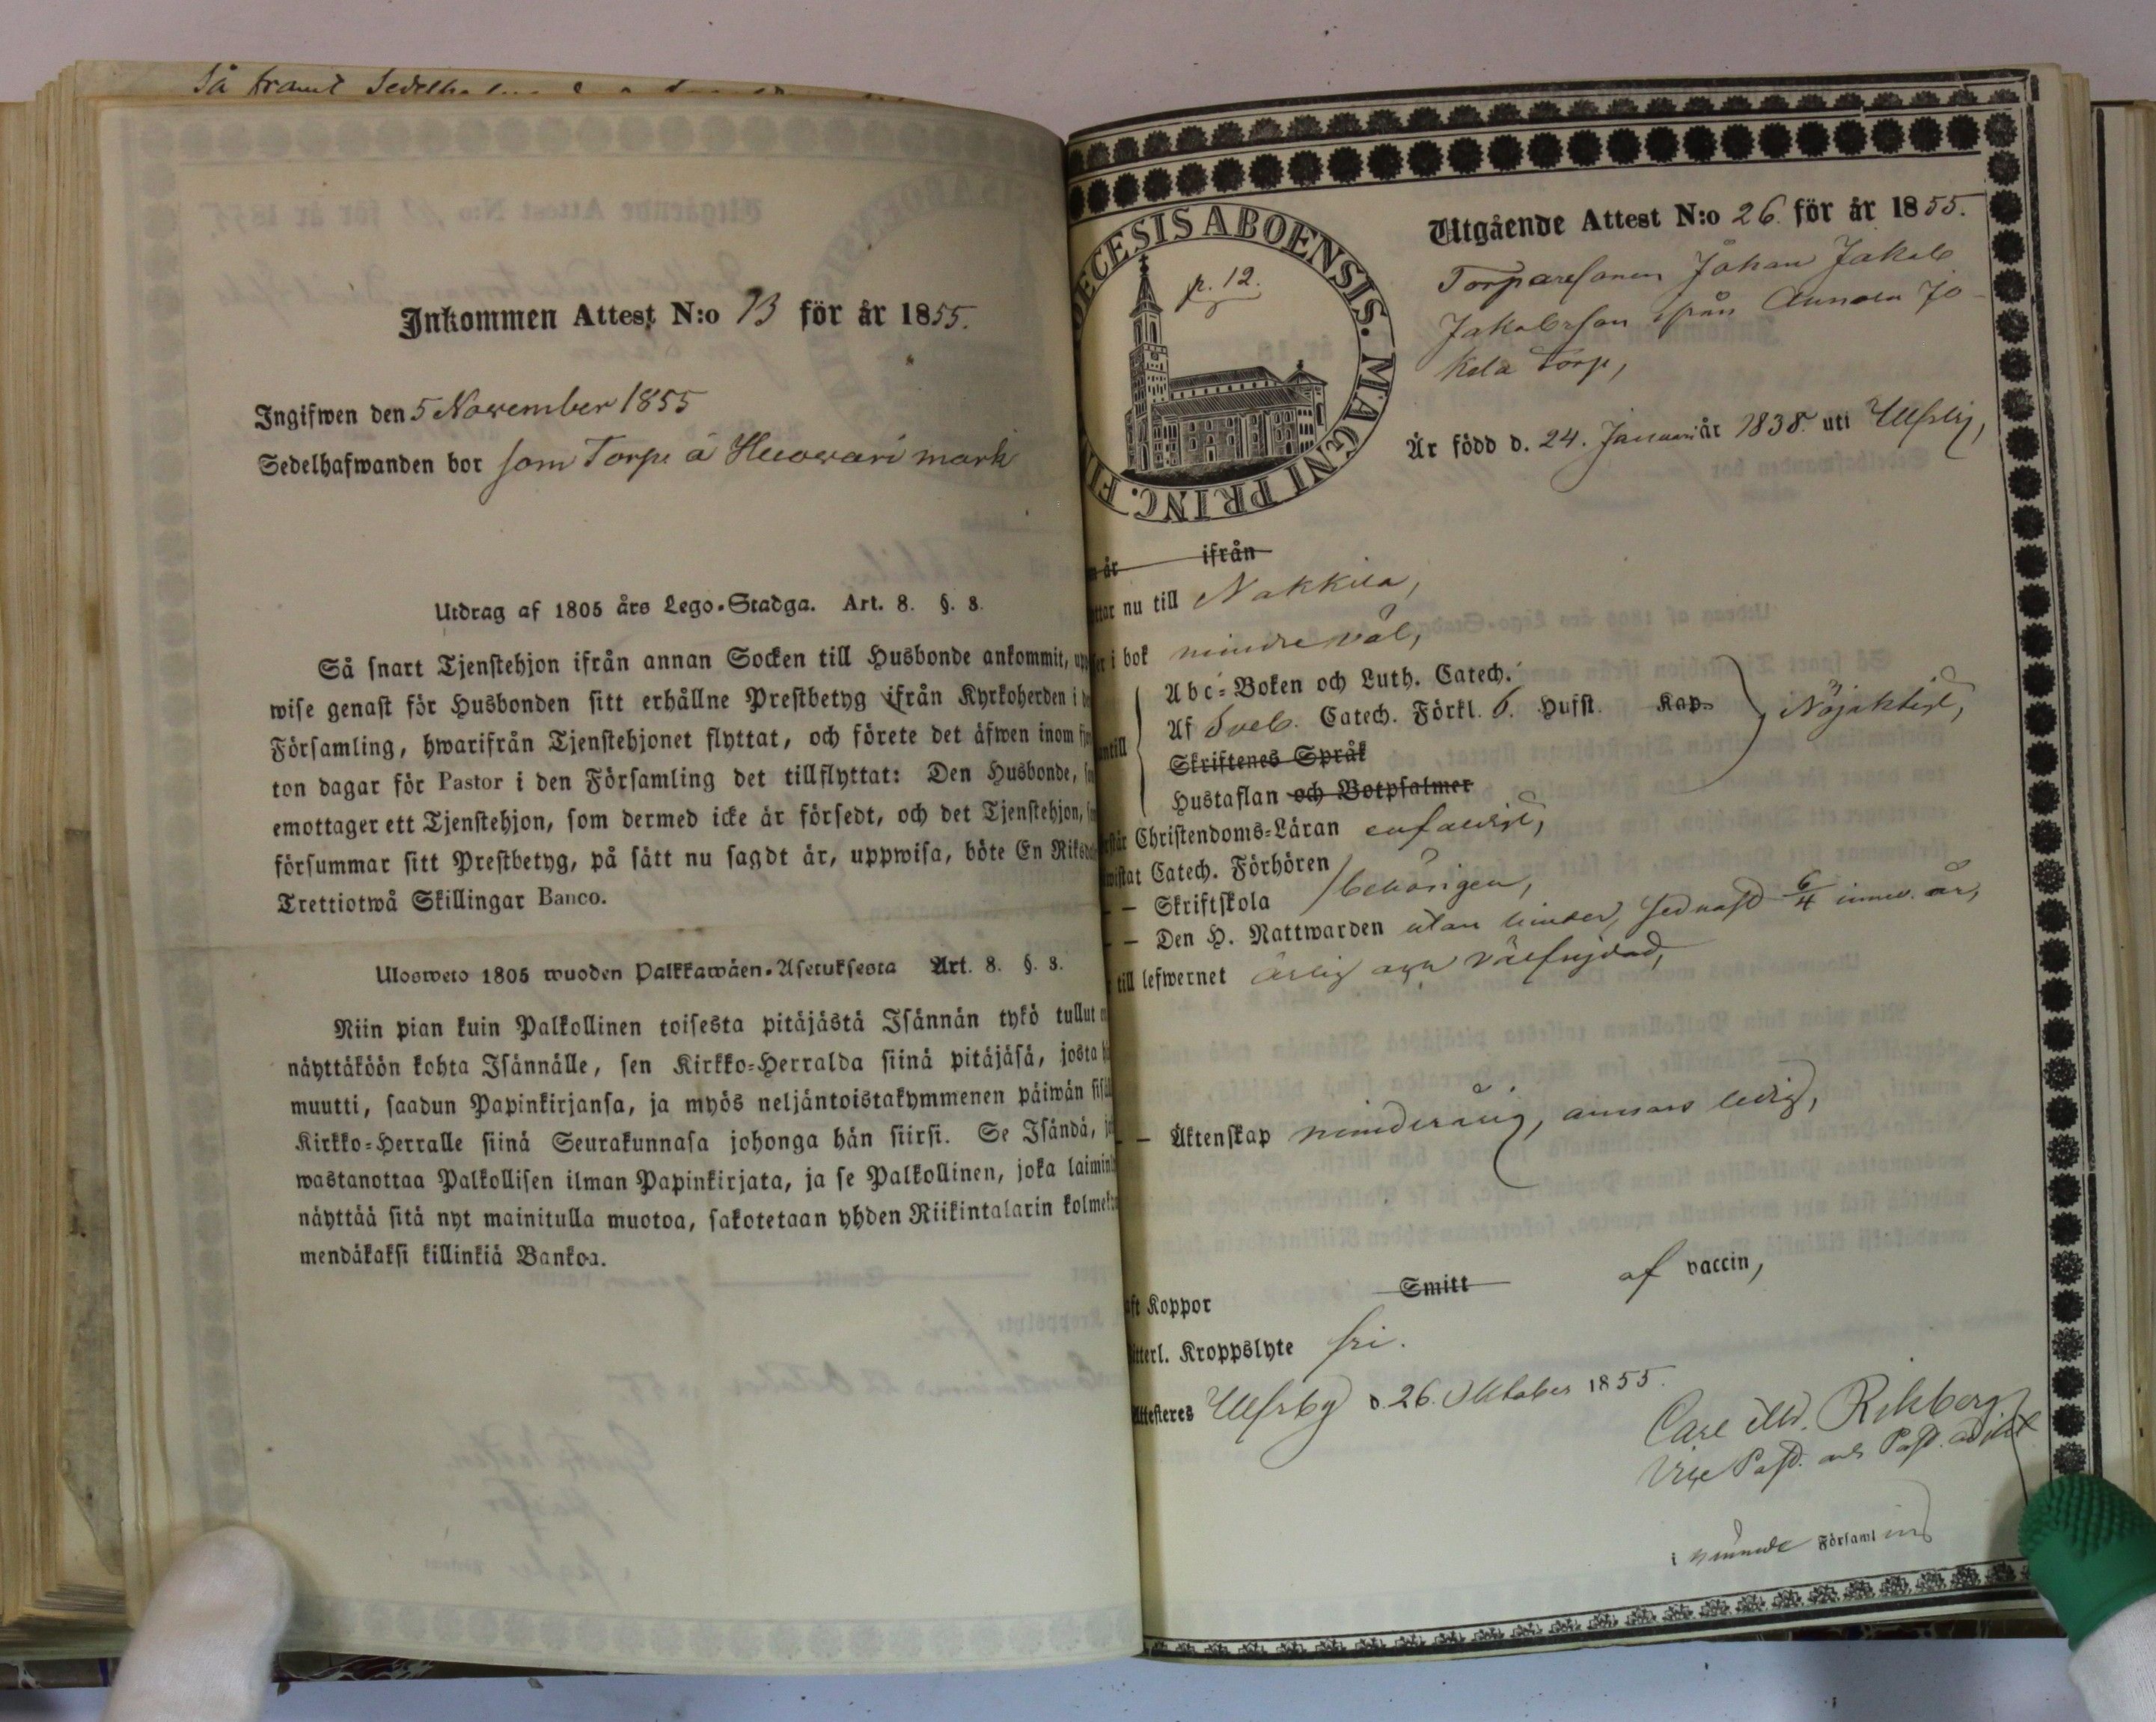 Så framt
Inkommen Attest N:o 13 för år 1855.
Ingifwen den 5 November 1855
Sedelhafwanden bor som Torp. å mark
Utdrag af 1805 års Lego-Stadga. Art. 8. §. 8.
Så snart Tjenstehjon ifrån annan Socken till Husbonde ankommit, upp
wise genast för Husbonden sitt erhållne Prestbetyg ifrån Kyrkoherden i
Församling, hwarifrån Tjenstehjonet flyttat, och förete det äfwen inom
ton dagar för Pastor i den Församling det tillflyttat: Den Husbonde,
emottager ett Tjenstehjon, som dermed icke är försedt, och det Tjenstehjon,
försummar sitt Prestbetyg, på sätt nu sagdt är, uppwisa, böte En Riksd
Trettiotwå Skillingar Banco.
Ulosweto 1805 wuoden Palkkawäen-Asetuksesta Art. 8. §. 8.
Niin pian kuin Palkollinen toisesta pitäjästä Isännän tykö tullut
näyttäköön kohta Isännälle, sen Kirkko-Herralda siinä pitäjäsä, josta
muutti, saadun Papinkirjansa, ja myös neljäntoistakymmenen päiwän sisäl
Kirkko-Herralle siinä Seurakunnasa johonga hän siirsi. Se Isändä,
wastanottaa Palkollisen ilman Papinkirjata, ja se Palkollinen, joka laimin
näyttää sitä nyt mainitulla muotoa, sakotetaan yhden Riikintalarin kolmek
mendäkaksi killinkiä Bankoa.
ECESIS ABOENSIS. MAGNI PRINC. FIN
p. 12.
Utgående Attest N:o 26. för år 1855.
Torparesonen Johan Jakob
Jakobsson ifrån Annala Jo-
kela Torp,
Är född d. 24. Januari år 1838. uti Ulfsby,
år ifrån
ttar nu till Nakkila,
er i bok mindre väl,
Abc-Boken och Luth. Catech.
Af Sveb. Catech. Förkl. 6. Hufst. Kap.
Nöjaktigt,
antill
Skriftenes Språk
Hustaflan och Botpsalmer
rstår Christendoms-Läran enfaldigt,
wistat Catech. Förhören
behörigen,
– – Skriftskola
– – Den H. Nattwarden utan hinder, sednast 6/4 innev. år,
till lefwernet ärlig och välfrejdad,
– – Äktenskap minderårig, annars ledig,
aft Koppor Smitt af vaccin,
itterl. Kroppslyte fri.
Attesteres Ulfsby d. 26. Oktober 1855.
Carl Rikberg
Vice Past. och Past. adjkt
i nämnde Församling